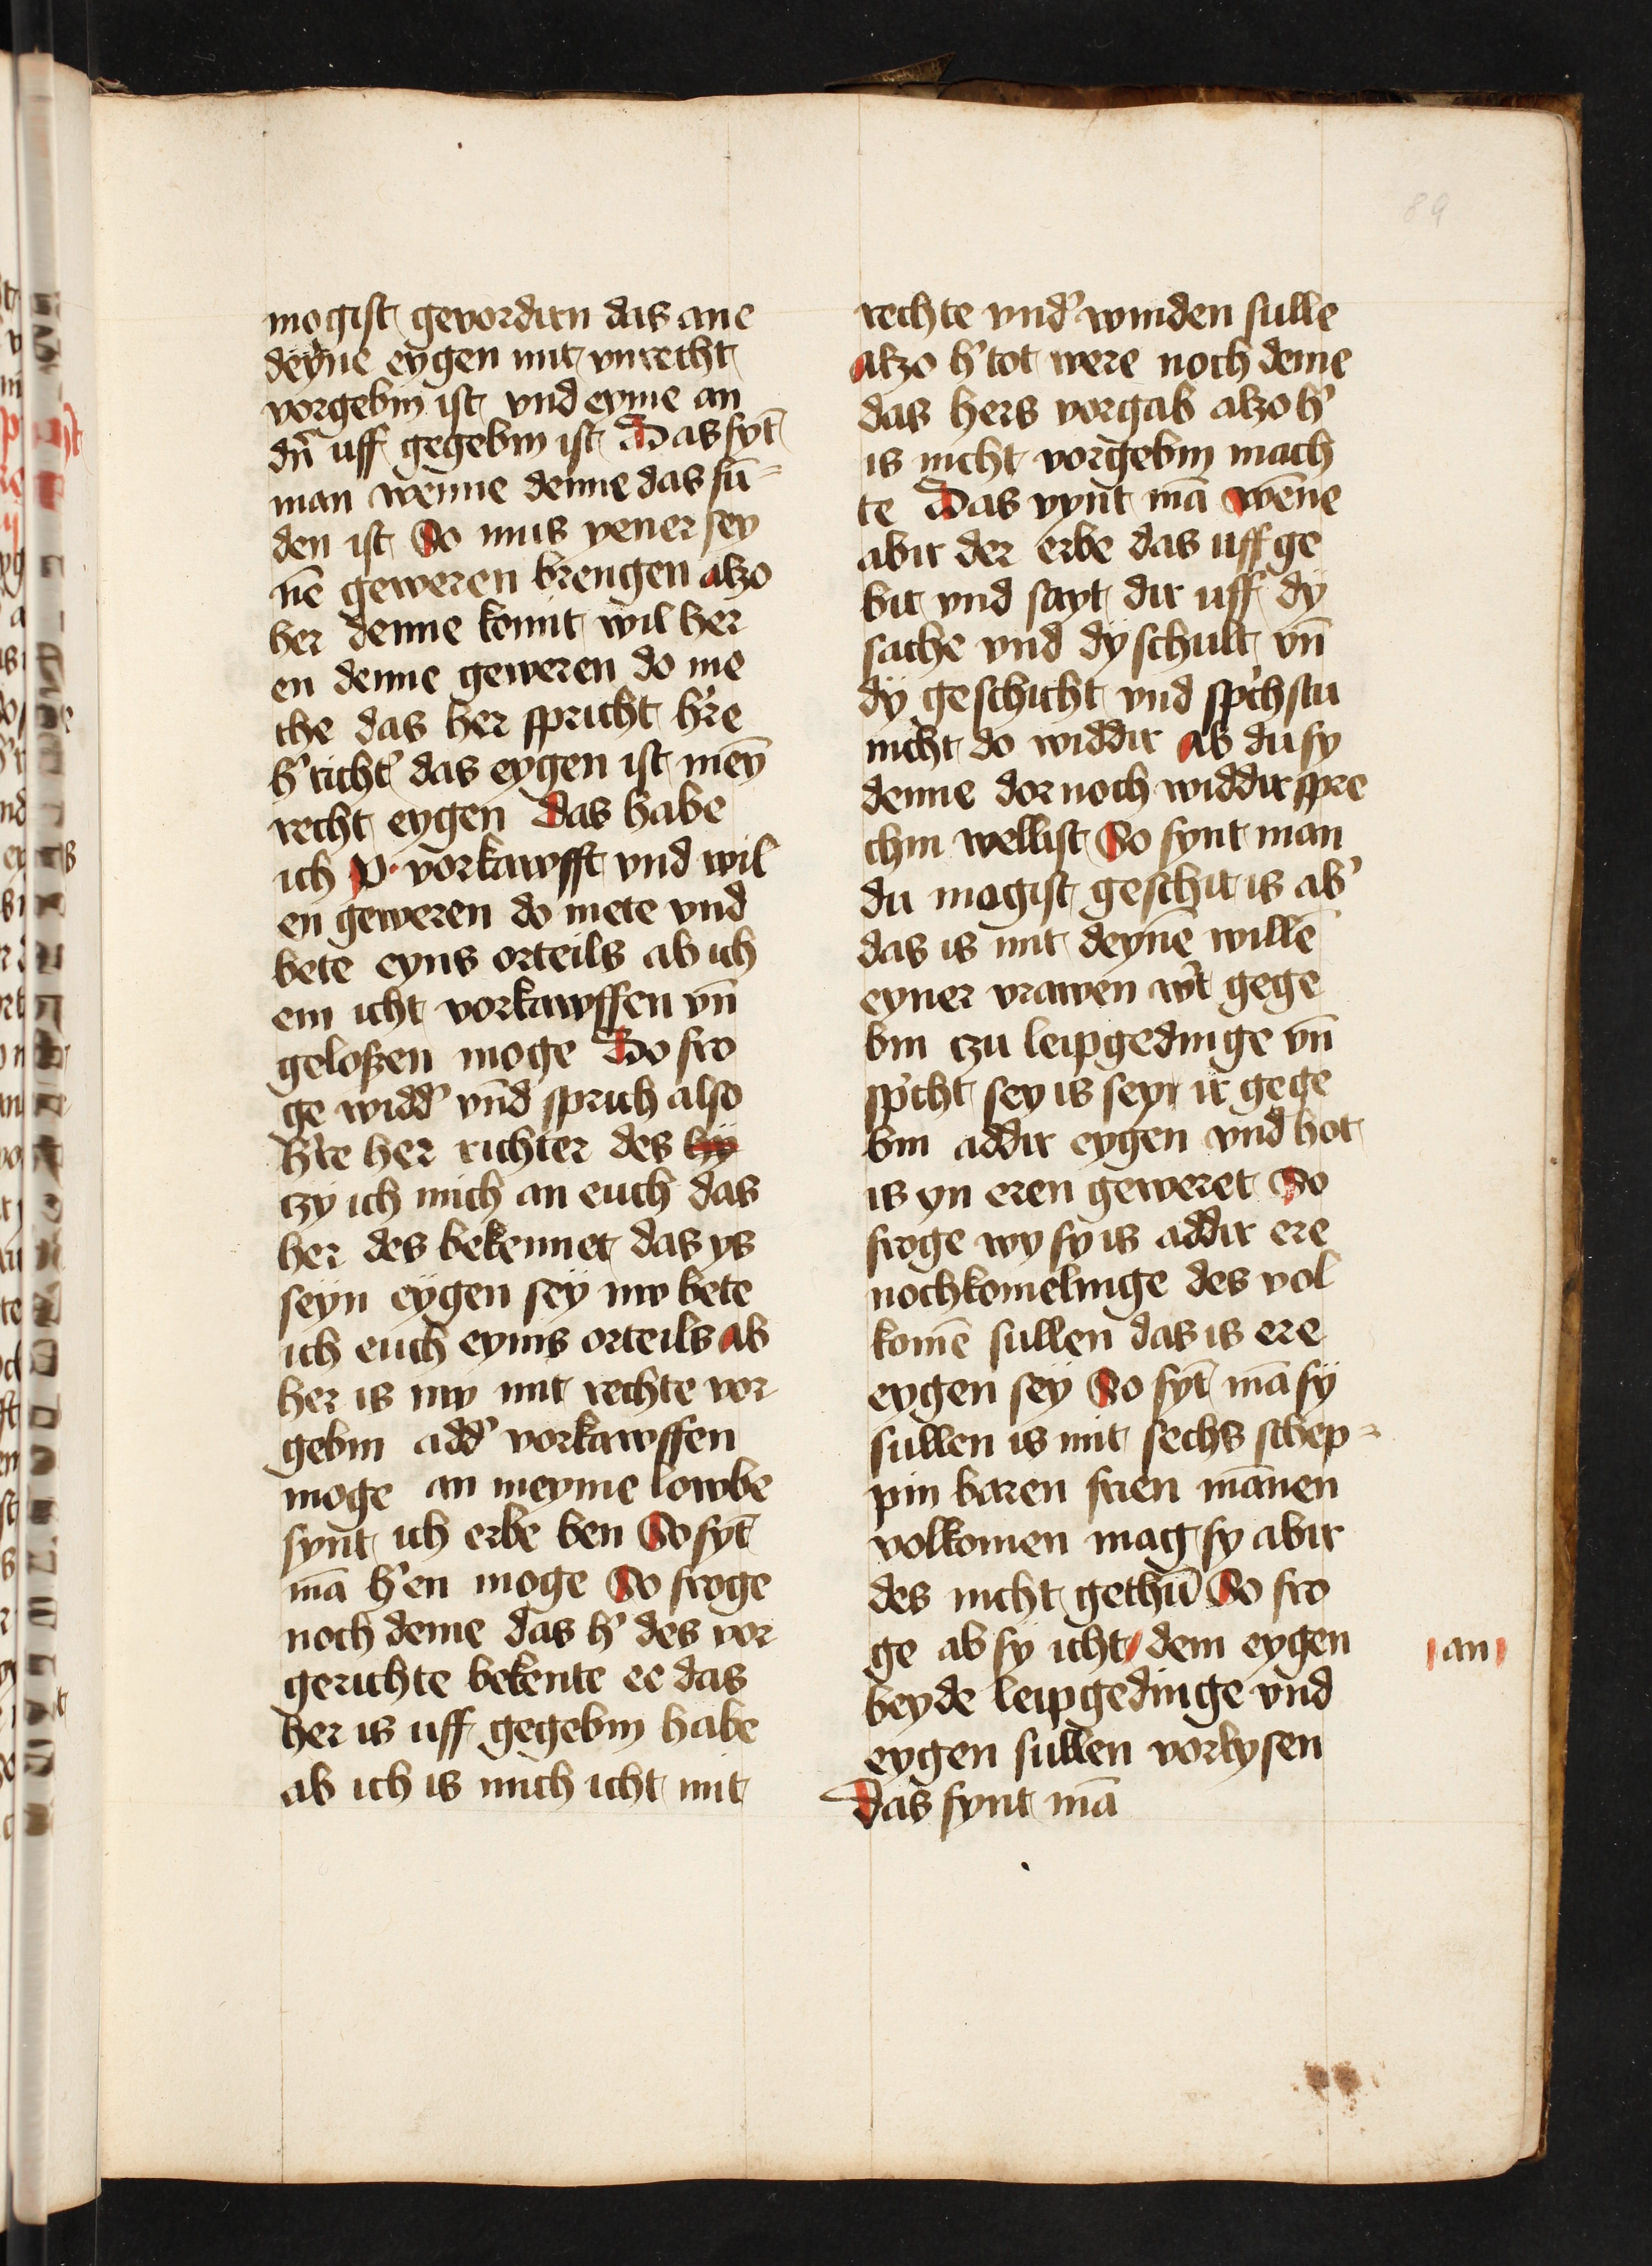 89
mogist gevordirn das ane
deyne eygen mit vnrecht
vorgebin ist vnd eyme an
dn̄ uff gegebin ist Das fyt̄
man wenne denne das fū=
den ist So mus yener sey
nē geweren brengen alzo
her denne komit wil her
en denne geweren do me
the das her spricht h're
h' richt' das eygen ist meȳ
recht eygen Das habe
ich P. vorkawfft vnd wil
en geweren do mete vnd
bete eyns orteils ab ich
em icht vorkawffen vn̄
geloßen moge So fro
ge widd' vnd sprich also
h're her richter des hy
czy ich mich an euch das
her des bekennet das ys
seyn eygen sey nw bete
ich euch eyms orteils ab
her is nw mit rechte vor
gebin add' vorkawffen
moge an meyme lowbe
synt ich erbe ben So fyt̄
mā h' en moge So froge
noch deme das h' des vor
gerichte bekente ee das
her is uff gegebin habe
ab ich is mich icht mit
rechte vnd' winden sulle
alzo h' tot were noch deme
das hers vorgab alzo h'
is nicht vorgebin mach
te Das vynt mā wēne
abir der erbe das uff ge
bit vnd sayt dir uff dy
sache vnd dy schult vn̄
dy geschicht vnd sp'chstu
nicht do widdir ab du sy
denne dornoch widdir spre
chin wellist So fynt man
du magist geschit is ab'
das is mit deynē willē
eyner vrawen w't gege
bin czu leipgedinge vn̄
sp'cht sey is seyr ir gege
bin addir eygen vnd hot
is yn eren geweret So
froge wy sy is addir ere
nochkomelinge des vol
komē sullen das is ere
eygen sey So fyt̄ mā sy
sullen is mit sechs schep=
pin baren frien mānen
volkomen mag sy abir
des nicht gethū So fro
ge ab sy icht dem eygen
an
beyde leipgedinge vnd
eygen sullen vorlysen
Das fynt mā